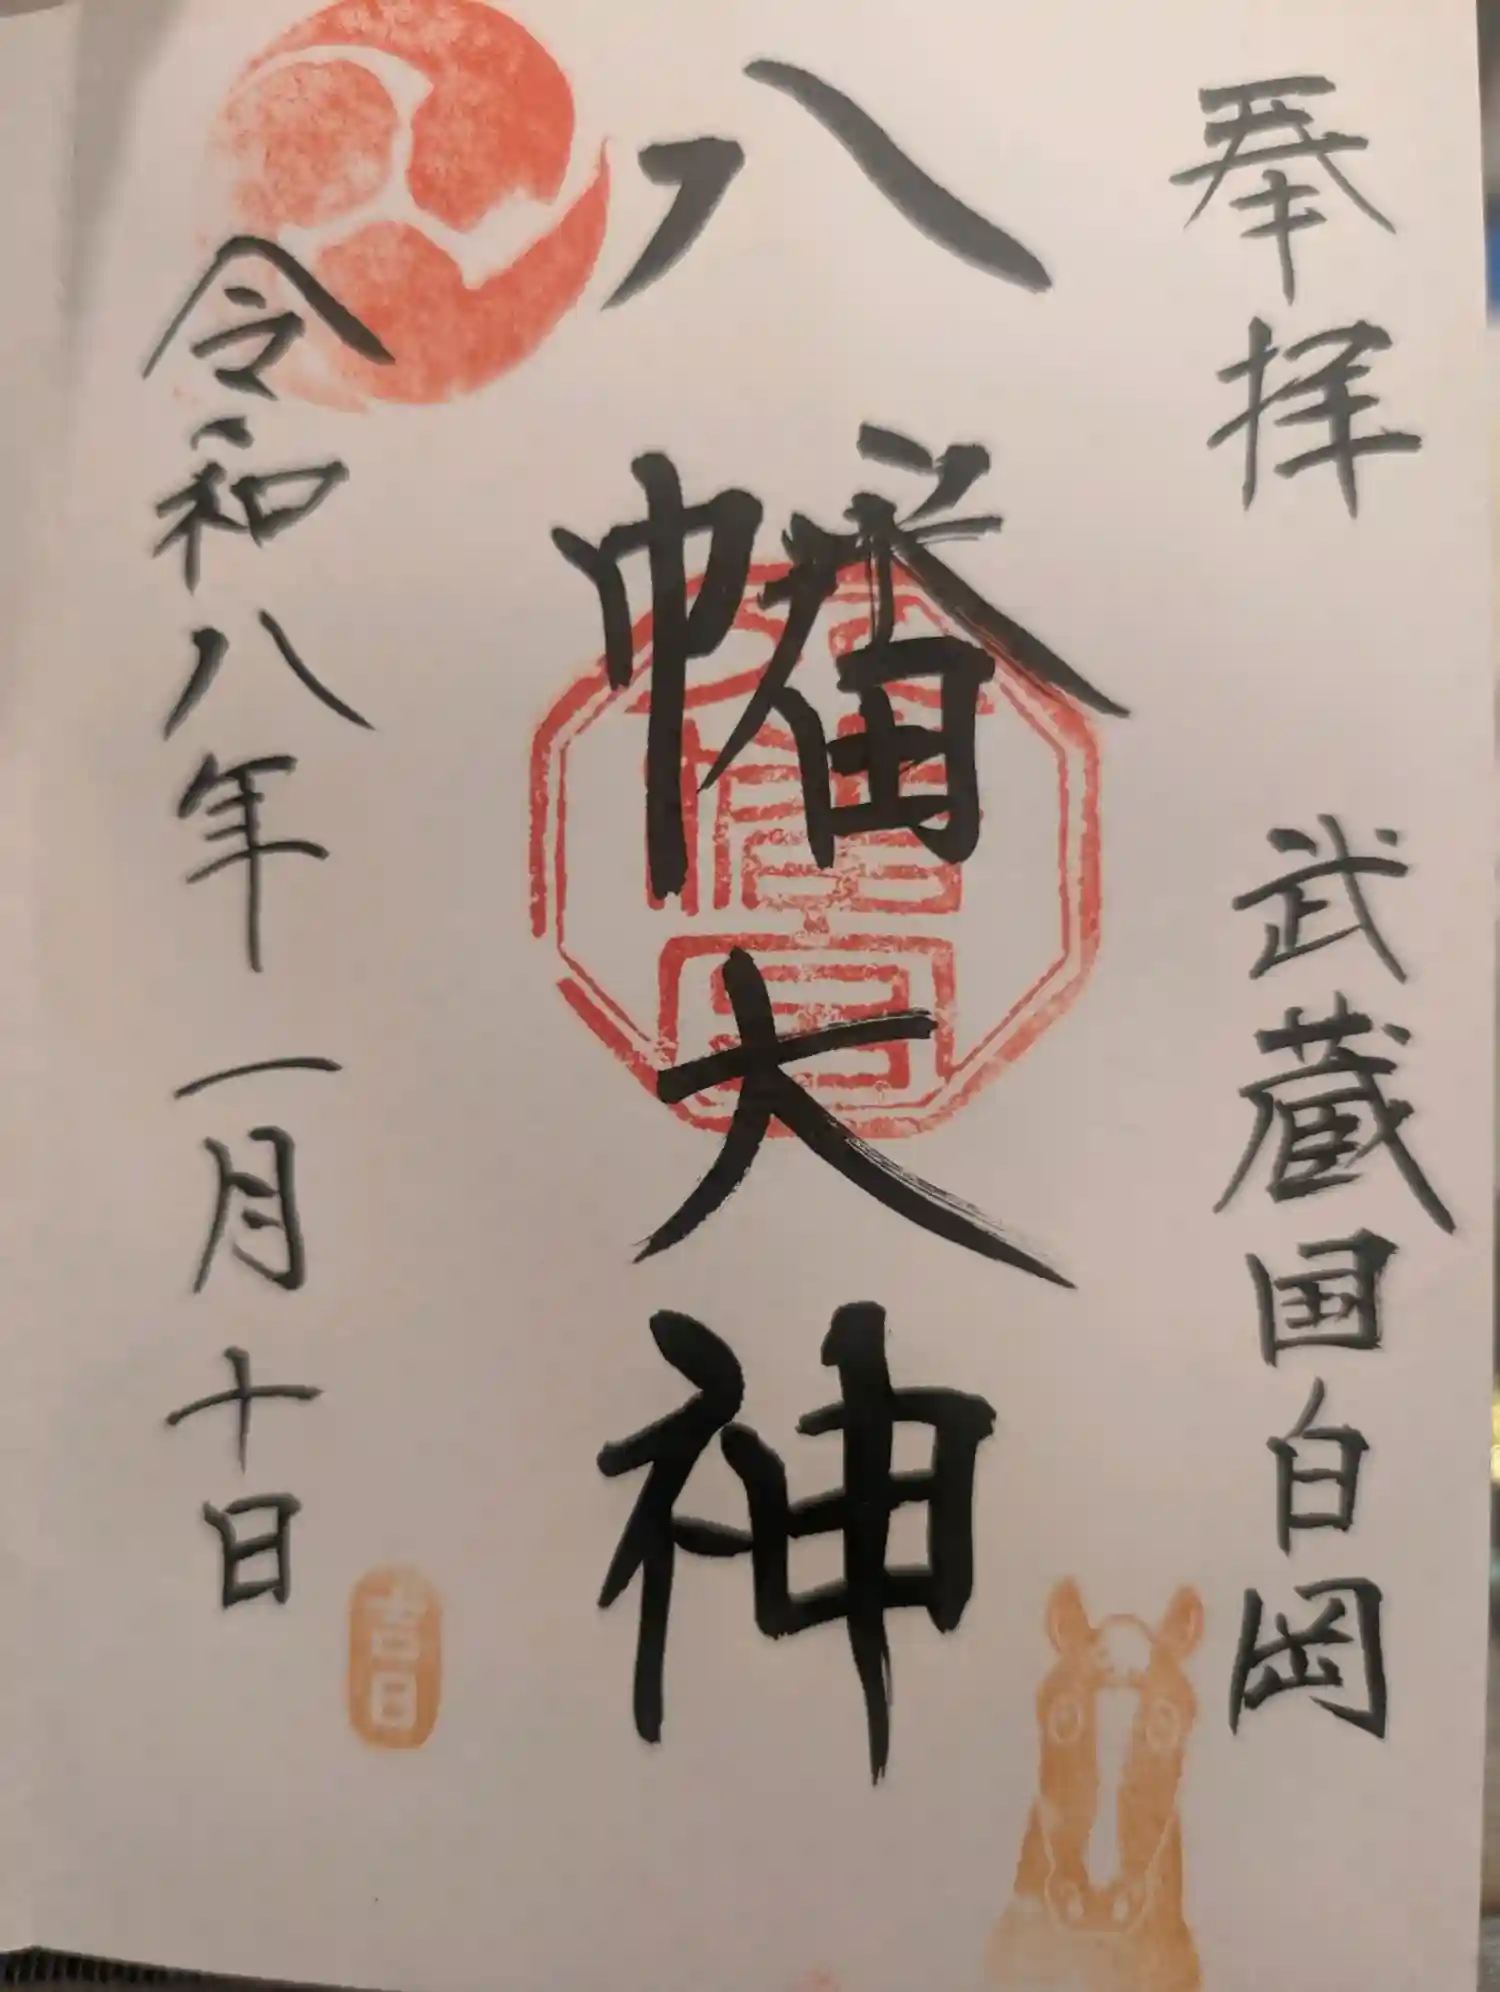 奉拝 武蔵国白岡
八幡大神
令和八年一月十日
吉日